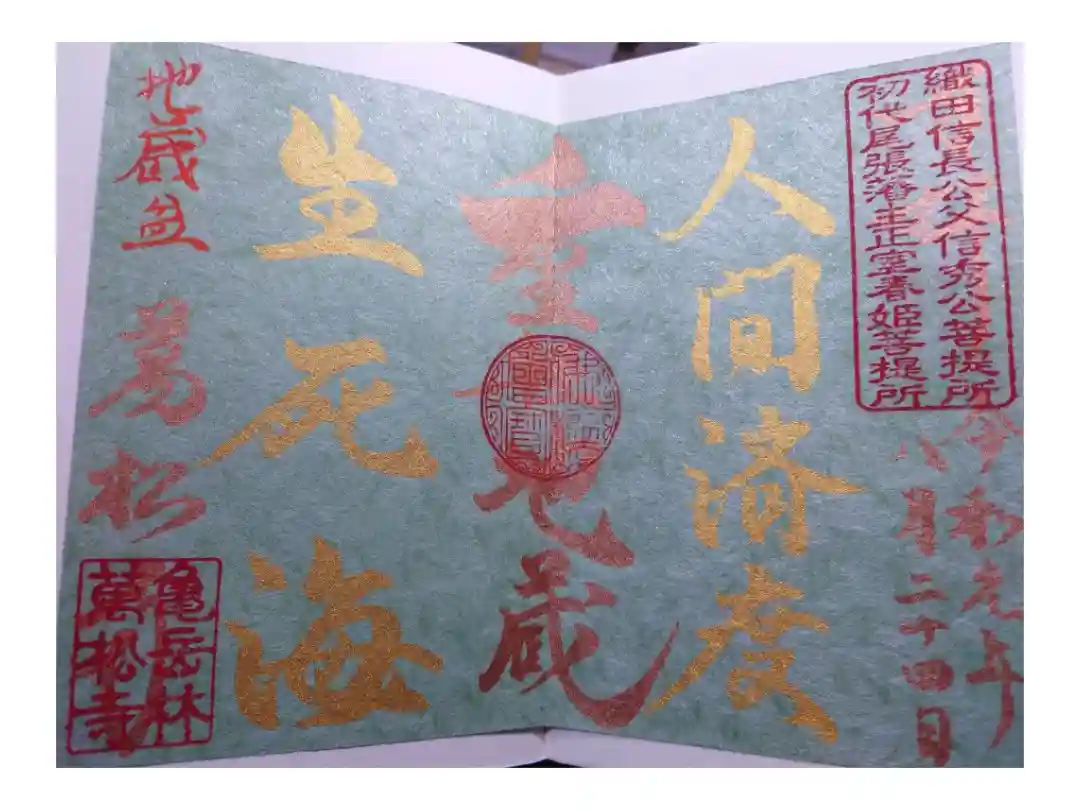 織田信長公父信秀公菩提所
初代尾張藩主正室春姫菩提所
令和元年
八月二十四日
人間済度
重 地蔵
生死海
地蔵盆
萬松寺
亀岳林
萬松寺